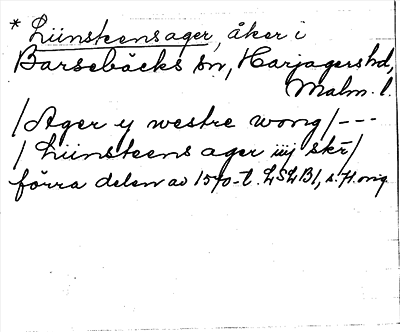 * Liinsteens ager, åker i
Barsebäcks sn, Harjagers hd,
Malm. l.
/Ager y westre wong/ ---
/ Liinsteens ager iiij skr̄/
förra delen av 1570-t. LSLB1, s. 71. orig